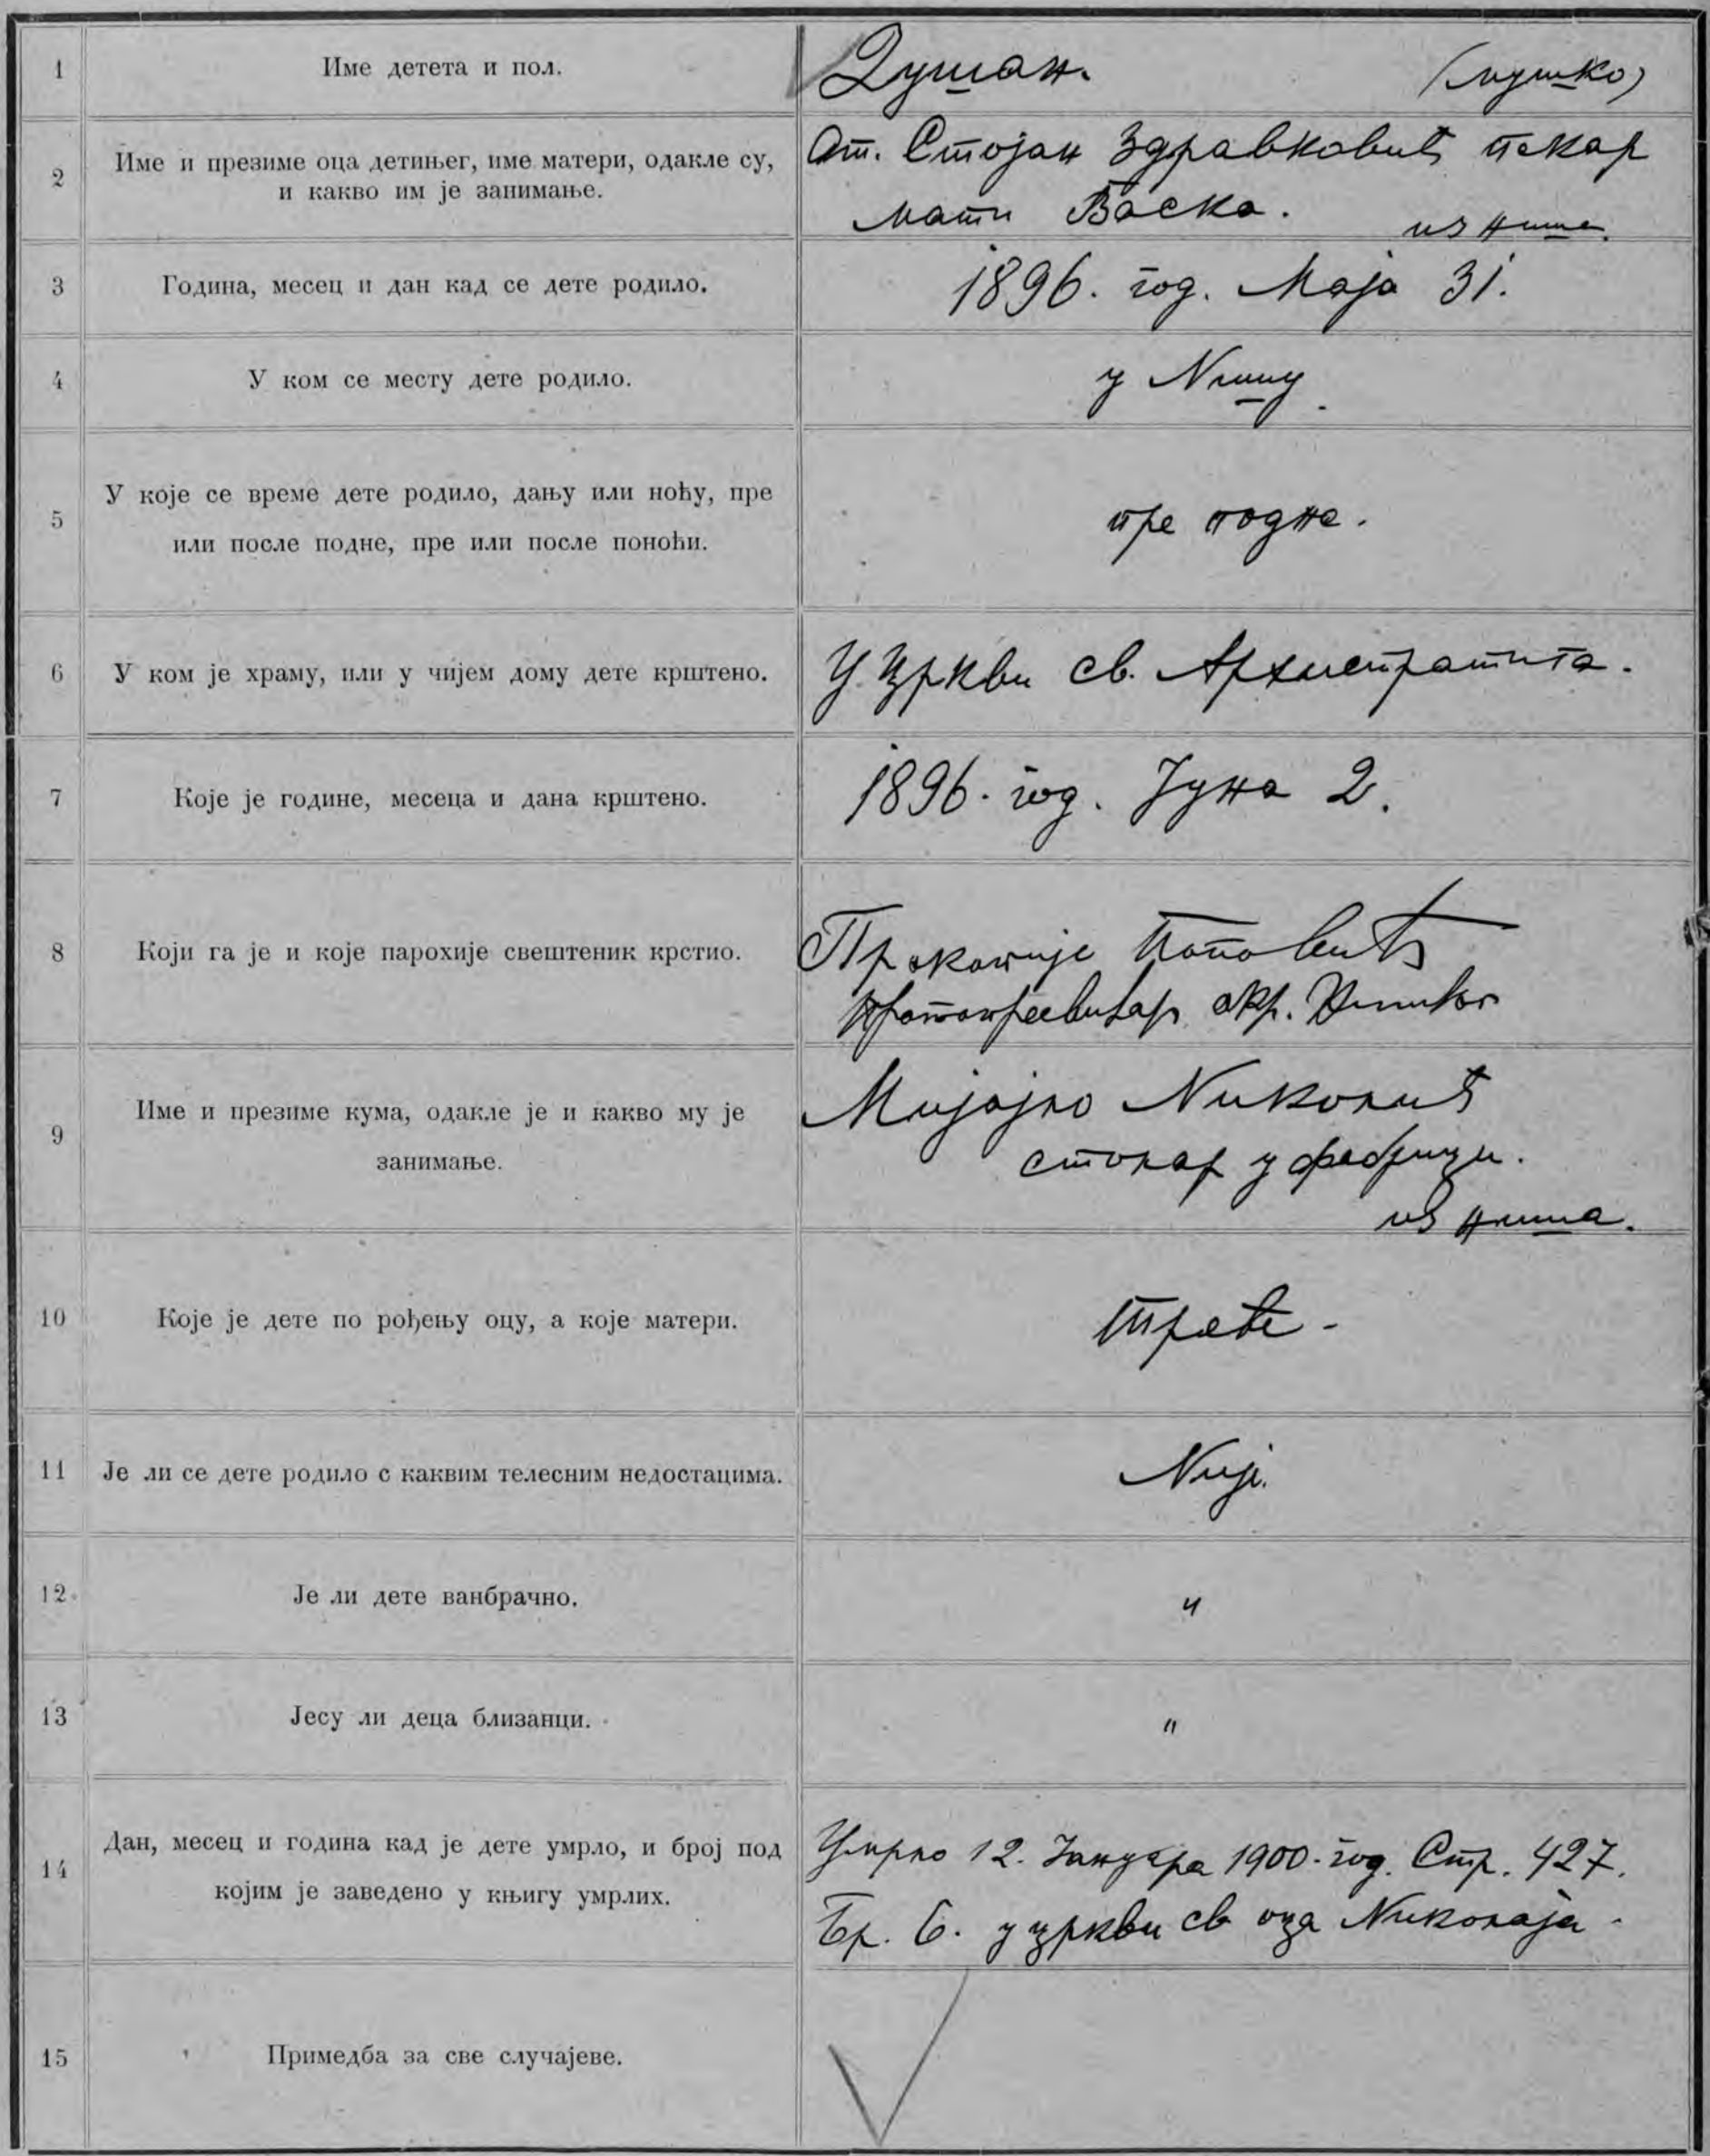 1
Име детета и пол.
Душан. (мушко)
2
Име и презиме оца детињег, име матери, одакле су,
и какво им је занимање.
От. Стојан Здравковић пекар
мати Васка. из Ниша.
3
Година, месец и дан кад се дете родило.
1896. год. Маја 31.
4
У ком се месту дете родило.
у Nишу.
5
У које се време дете родило, дању или ноћу, пре
или после подне, пре или после поноћи.
пре подне.
6
У ком је храму, или у чијем дому дете крштено.
У цркви св. Архистратига.
7
Које је године, месеца и дана крштено.
1896. год. Јуна 2.
8
Који га је и које парохије свештеник крстио.
Прокопије Поповић
протопресвитар окр.
9
Име и презиме кума, одакле је и какво му је
занимање.
Мијајло Nиколић
столар у фабрици.
из Ниша.
10
Које је дете по рођењу оцу, а које матери.
треће -
11
Је ли се дете родило с каквим телесним недостацима.
Nије.
12.
Је ли дете ванбрачно.
"
13
Јесу ли деца близанци.
"
14
Дан, месец и година кад је дете умрло, и број под
којим је заведено у књигу умрлих.
Умрло 12. Јануара 1900. год. Стр. 427.
Бр. 6. у цркви св оца Nиколаја -
15
Примедба за све случајеве.